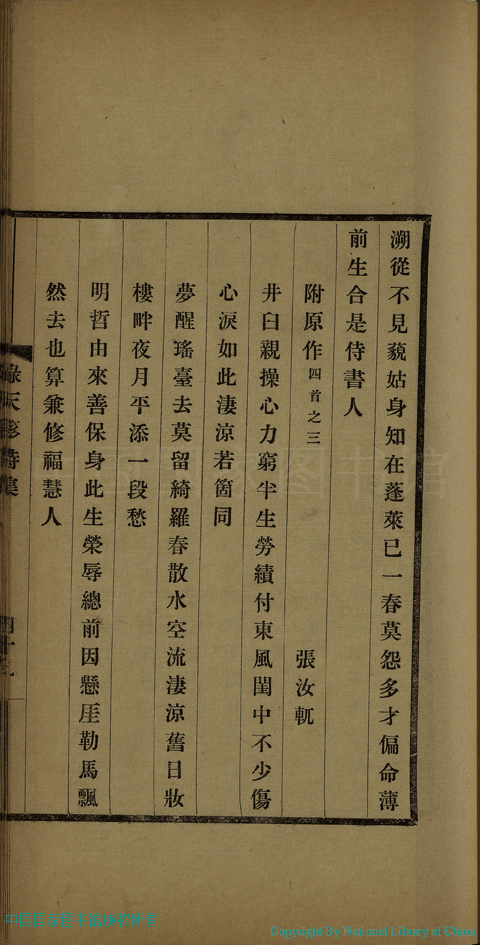 溯從不見藐姑身知在蓬萊已一春莫怨多才偏命薄
前生合是侍書人
附原作四首之三
張汝䡄
井臼親操心力窮半生勞績付東風閨中不少傷
心淚如此淒涼若箇同
夢醒瑤臺去莫留綺羅春散水空流淒涼舊日妝
樓畔夜月平添一段愁
明哲由來善保身此生榮辱總前因懸厓勒馬飄
然去也算兼修福慧人
天
詩集
Copyright by National Library of China